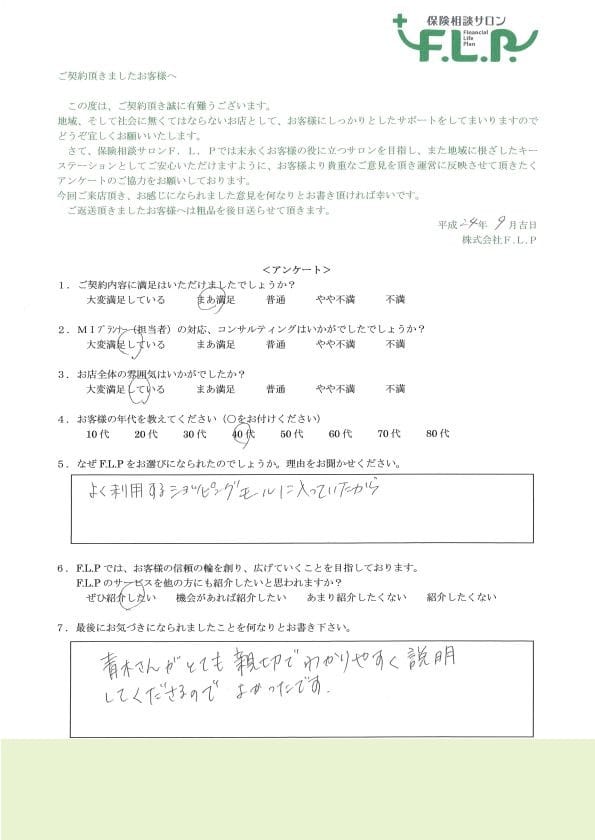 保険相談サロン
Financial
Life
Plan
F.L.P.
ご契約頂きましたお客様へ
この度は、ご契約頂き誠に有難うございます。
地域、そして社会に無くてはならないお店として、お客様にしっかりとしたサポートをしてまいりますので
どうぞ宜しくお願いいたします。
さて、保険相談サロンF．L．Pでは末永くお客様の役に立つサロンを目指し、また地域に根ざしたキー
ステーションとしてご安心いただけますように、お客様より貴重なご意見を頂き運営に反映させて頂きたく
アンケートのご協力をお願いしております。
今回ご来店頂き、お感じになられました意見を何なりとお書き頂ければ幸いです。
ご返送頂きましたお客様へは粗品を後日送らせて頂きます。
平成 24年 9月吉日
株式会社F.L.P
＜アンケート＞
1．ご契約内容に満足はいただけましたでしょうか？
大変満足している まあ満足 普通 やや不満 不満
2．MIプランナー（担当者）の対応、コンサルティングはいかがでしたでしょうか？
大変満足している まあ満足 普通 やや不満 不満
3．お店全体の雰囲気はいかがでしたか？
大変満足している まあ満足 普通 やや不満 不満
4．お客様の年代を教えてください（○をお付けください）
10代 20代 30代 40代 50代 60代 70代 80代
5．なぜF.L.Pをお選びになられたのでしょうか。理由をお聞かせください。
よく利用するショッピングモールに入っていたから
6．F.L.Pでは、お客様の信頼の輪を創り、広げていくことを目指しております。
F.L.Pのサービスを他の方にも紹介したいと思われますか？
ぜひ紹介したい 機会があれば紹介したい あまり紹介したくない 紹介したくない
7．最後にお気づきになられましたことを何なりとお書き下さい。
青木さんがとても親切でわかりやすく説明
してくださるのでよかったです.